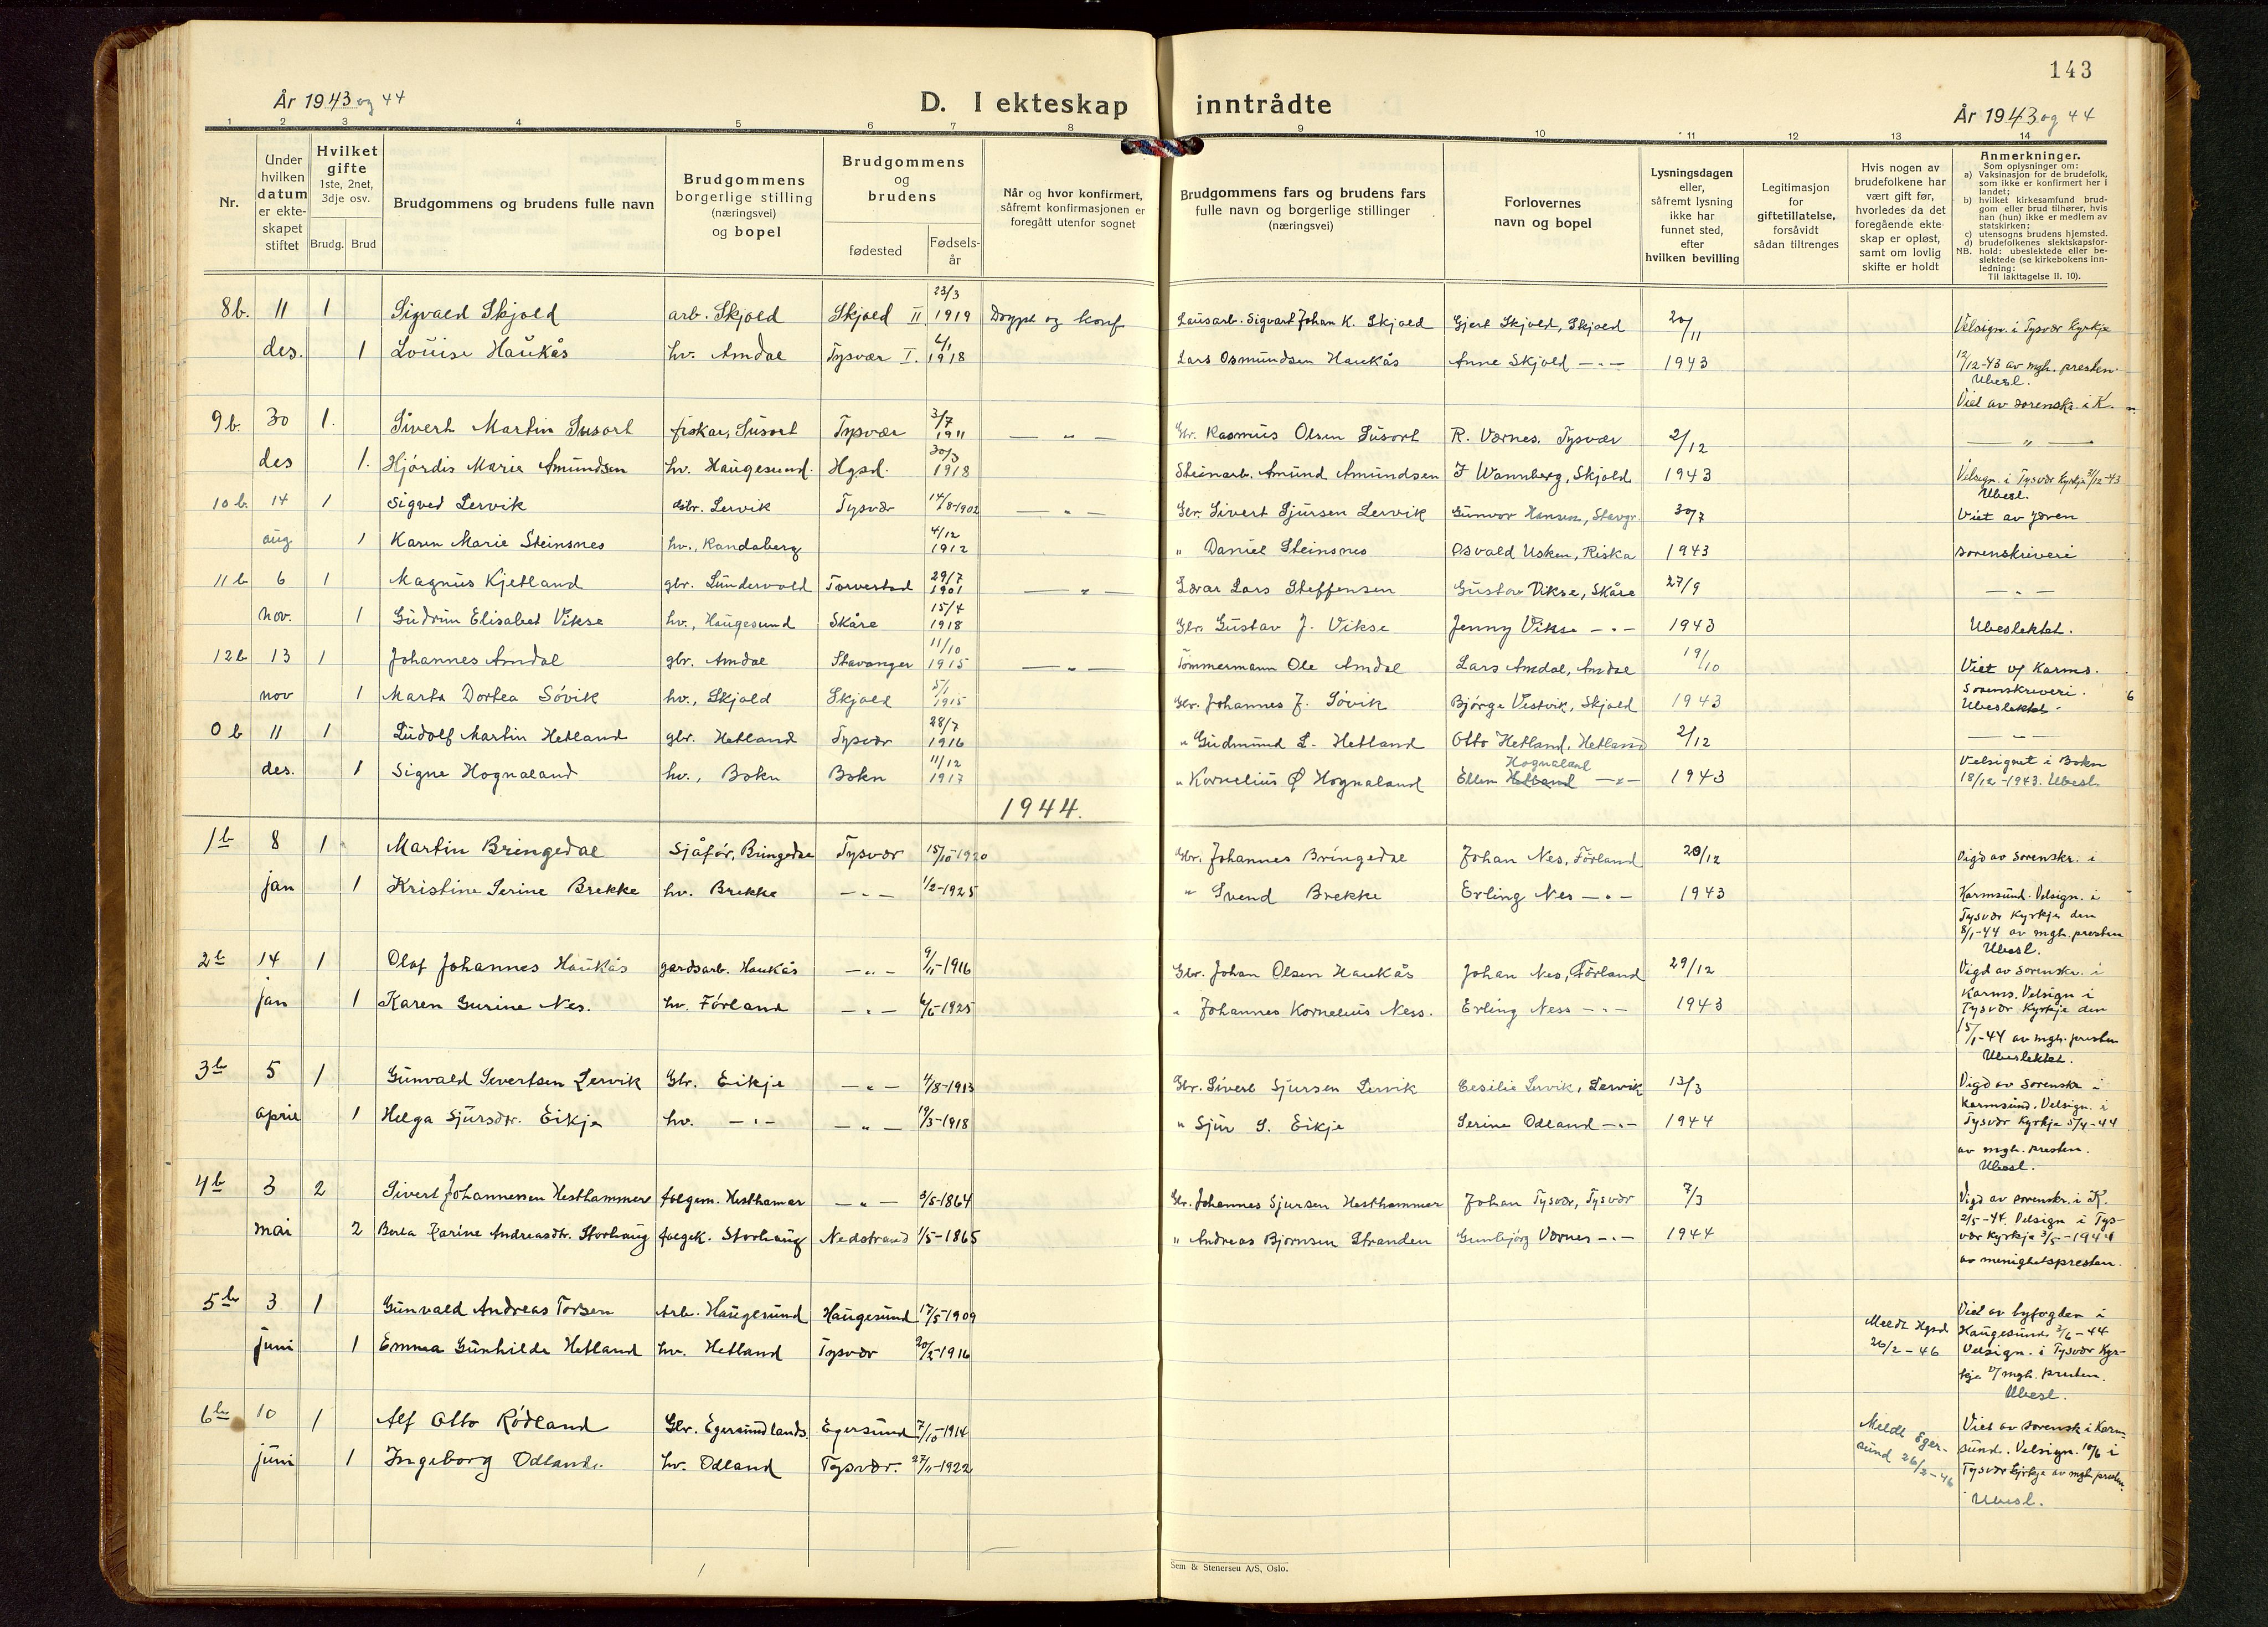 143
År 1943 og 44
D. I ekteskap inntrådte
År 1943 og 44
1 2 3 4 5 6 7 8 9 10 11 12 13 14
Nr.
Under hvilken datum er ekteskapet stiftet
Hvilket gifte 1ste, 2net, 3dje osv.
Brudg. Brud
Brudgommens og brudens fulle navn
Brudgommens borgerlige stilling (næringsvei) og bopel
Brudgommens og brudens
fødested
Fødsels-år
Når og hvor konfirmert, såfremt konfirmasjonen er foregått utenfor sognet
Brudgommens fars og brudens fars fulle navn og borgerlige stillinger (næringsvei)
Forlovernes navn og bopel
Lysningsdagen eller, såfremt lysning ikke har funnet sted, efter hvilken bevilling
Legitimasjon for giftetillatelse, forsåvidt sådan tiltrenges
Hvis nogen av brudefolkene har vært gift før, hvorledes da det foregående ekteskap er opløst, samt om lovlig skifte er holdt
Anmerkninger.
Som oplysninger om:
a) Vaksinasjon for de brudefolk, som ikke er konfirmert her i landet;
b) hvilket kirkesamfund brudgom eller brud tilhører, hvis han (hun) ikke er medlem av statskirken;
c) utensogns brudens hjemsted.
d) brudefolkenes slektskapsforhold: ubeslektede eller beslektede (se kirkebokens innledning:
NB.
Til iakttagelse II. 10).
8b. 11 1 Sigvald Skjold arb. Skjold Skjold II 23/3 1919 Døypt og konf Lausarb. Sigvart Johan K. Skjold Gjert Skjold, Skjold 20/11 Velsign. i Tysvær Kyrkje
des. 1 Louise Haukås hv. Amdal Tysvær I. 6/1 1918 Lars Osmundsen Haukås Anne Skjold —"— 1943 12/12-43 av mgh. presten. Ubesl.
9b. 30 1. Sivert Martin Susort fiskar, Susort Tysvær 3/7 1911 —"— Gbr. Rasmus Olsen Susort R. Værnes, Tysvær 2/12 Viet av sorenskr. i K.
—"—
des 1. Hjørdis Marie Amundsen hv. Haugesund. Hgsd. 30/3 1918 Steinarb. Amund Amundsen J Wannberg, Skjold 1943 Velsign. i Tysvær Kyrkje 31/12-43 Ubesl.
10b. 14 1 Sigved Lervik gbr. Lervik Tysvær 14/8-1902 —"— Gbr. Sivert Sjursen Lervik Gunvor Hansen, Stavgr. 30/7 Viet av Jæren
aug 1 Karen Marie Steinsnes hv., Randaberg 4/12 1912 " Daniel Steinsnes Osvald Usken, Riska 1943 sorenskriveri
11b 6 1 Magnus Kjetland gbr. Lundervold Torvestad 29/7 1901 —"— Lærar Lars Steffensen Gustav Vikse, Skåre 27/9 —"—
nov. 1 Gudrun Elisabet Vikse hv., Haugesund Skåre 15/4 1918 Gbr. Gustav J. Vikse Jenny Vikse —"— 1943 Ubeslektet.
12b 13 1 Johannes Amdal gbr. Amdal Stavanger 11/10 1915 —"— Tømmermann Ole Amdal Lars Amdal, Amdal 19/10 Viet v/ Karms.
nov 1 Marta Dortea Søvik hv., Skjold Skjold 5/1 1915 Gbr. Johannes J. Søvik Bjørge Vestvik, Skjold 1943 Sorenskriveri. Ubeslektet.
6
0b 11 1 Ludolf Martin Hetland gbr. Hetland Tysvær 28/7 1916 " Gudmund L. Hetland Otto Hetland, Hetland 2/12 —"—
des. 1 Signe Hognaland hv., Bokn Bokn 11/12 1917 " Kornelius Ø Hognaland Ellen Hetland Hognaland —"— 1943 Velsignet i Bokn 18/12-1943. Ubesl.
1944.
1b 8 1 Martin Bringedal Sjåfør, Bringedal Tysvær 15/10-1920 Gbr. Johannes Bringedal Johan Nes, Førland 20/12 Vigd av Sorenskr. i
jan 1 Kristine Serine Brekke hv. Brekke —"— 1/2-1925 " Svend Brekke Erling Nes —"— 1943 Karmsund. Velsign. i
Tysvær Kyrkje den
8/1-44 av mgh. presten
Ubesl.
2b 14 1 Olaf Johannes Haukås gardsarb. Haukås —"— 9/11-1916 Gbr. Johan Olsen Haukås Johan Nes, Førland 29/12 Vigd av Sorenskr. i
jan 1 Karen Gurine Nes. hv. Førland —"— 6/6-1925 " Johannes Kornelius Ness. Erling Ness —"— 1943 Karms. Velsign i
Tysvær Kyrkje den
15/1-44 av mgh. presten
Ubeslektet.
3b 5 1 Gunvald Severtsen Lervik Gbr. Eikje —"— 4/8-1913 Gbr. Sivert Sjursen Lervik Cesilie Lervik, Lervik 13/3 Vigd av Sorenskr i
april 1 Helga Sjursdr. Eikje hv. —"— —"— 19/3-1918 " Sjur S. Eikje Serine Odland —"— 1944 Karmsund. Velsign. i
Tysvær Kyrkje 5/4-44
av mgh. presten.
Ubesl.
4b 3 2 Sivert Johannesen Hesthammer folgem. Hesthamar —"— 9/5-1864 Gbr. Johannes Sjursen Hesthammer Johan Tysvær, Tysvær 7/3 Vigd av sorenskr. i K.
mai 2 Berta Karine Andreasdtr. Storhaug folgek. Storhaug Nedstrand 1/5-1865 " Andreas Bjørnsen Stranden Gunbjørg Værnes —"— 1944 2/5-44. Velsign i Tys-
vær Kyrkje 3/5-1944
av menighetspresten.
5b 3 1 Gunvald Andreas Torsen Arb. Haugesund Haugesund 17/5-1909 Meldt Hgsd. 26/2-46 Viet av byfogden i
juni 1 Emma Gunhilde Hetland hv. Hetland Tysvær 20/2-1916 Haugesund 3/6-44
Velsign. i Tysvær Kyr-
kje v/ mgh. presten.
Ubesl.
6b 10 1 Alf Otto Rødland Gbr. Egersundlands. Egersund 7/10-1914 Meldt Eger-
sund 26/2-46 Viet av sorensk i Karm-
juni 1 Ingeborg Odland. hv. Odland Tysvær. 27/11-1922 sund. Velsign. 10/6 i
Tysvær Kyrkje av mgh presten.
Ubesl.
Sem & Stenersen A/S, Oslo.